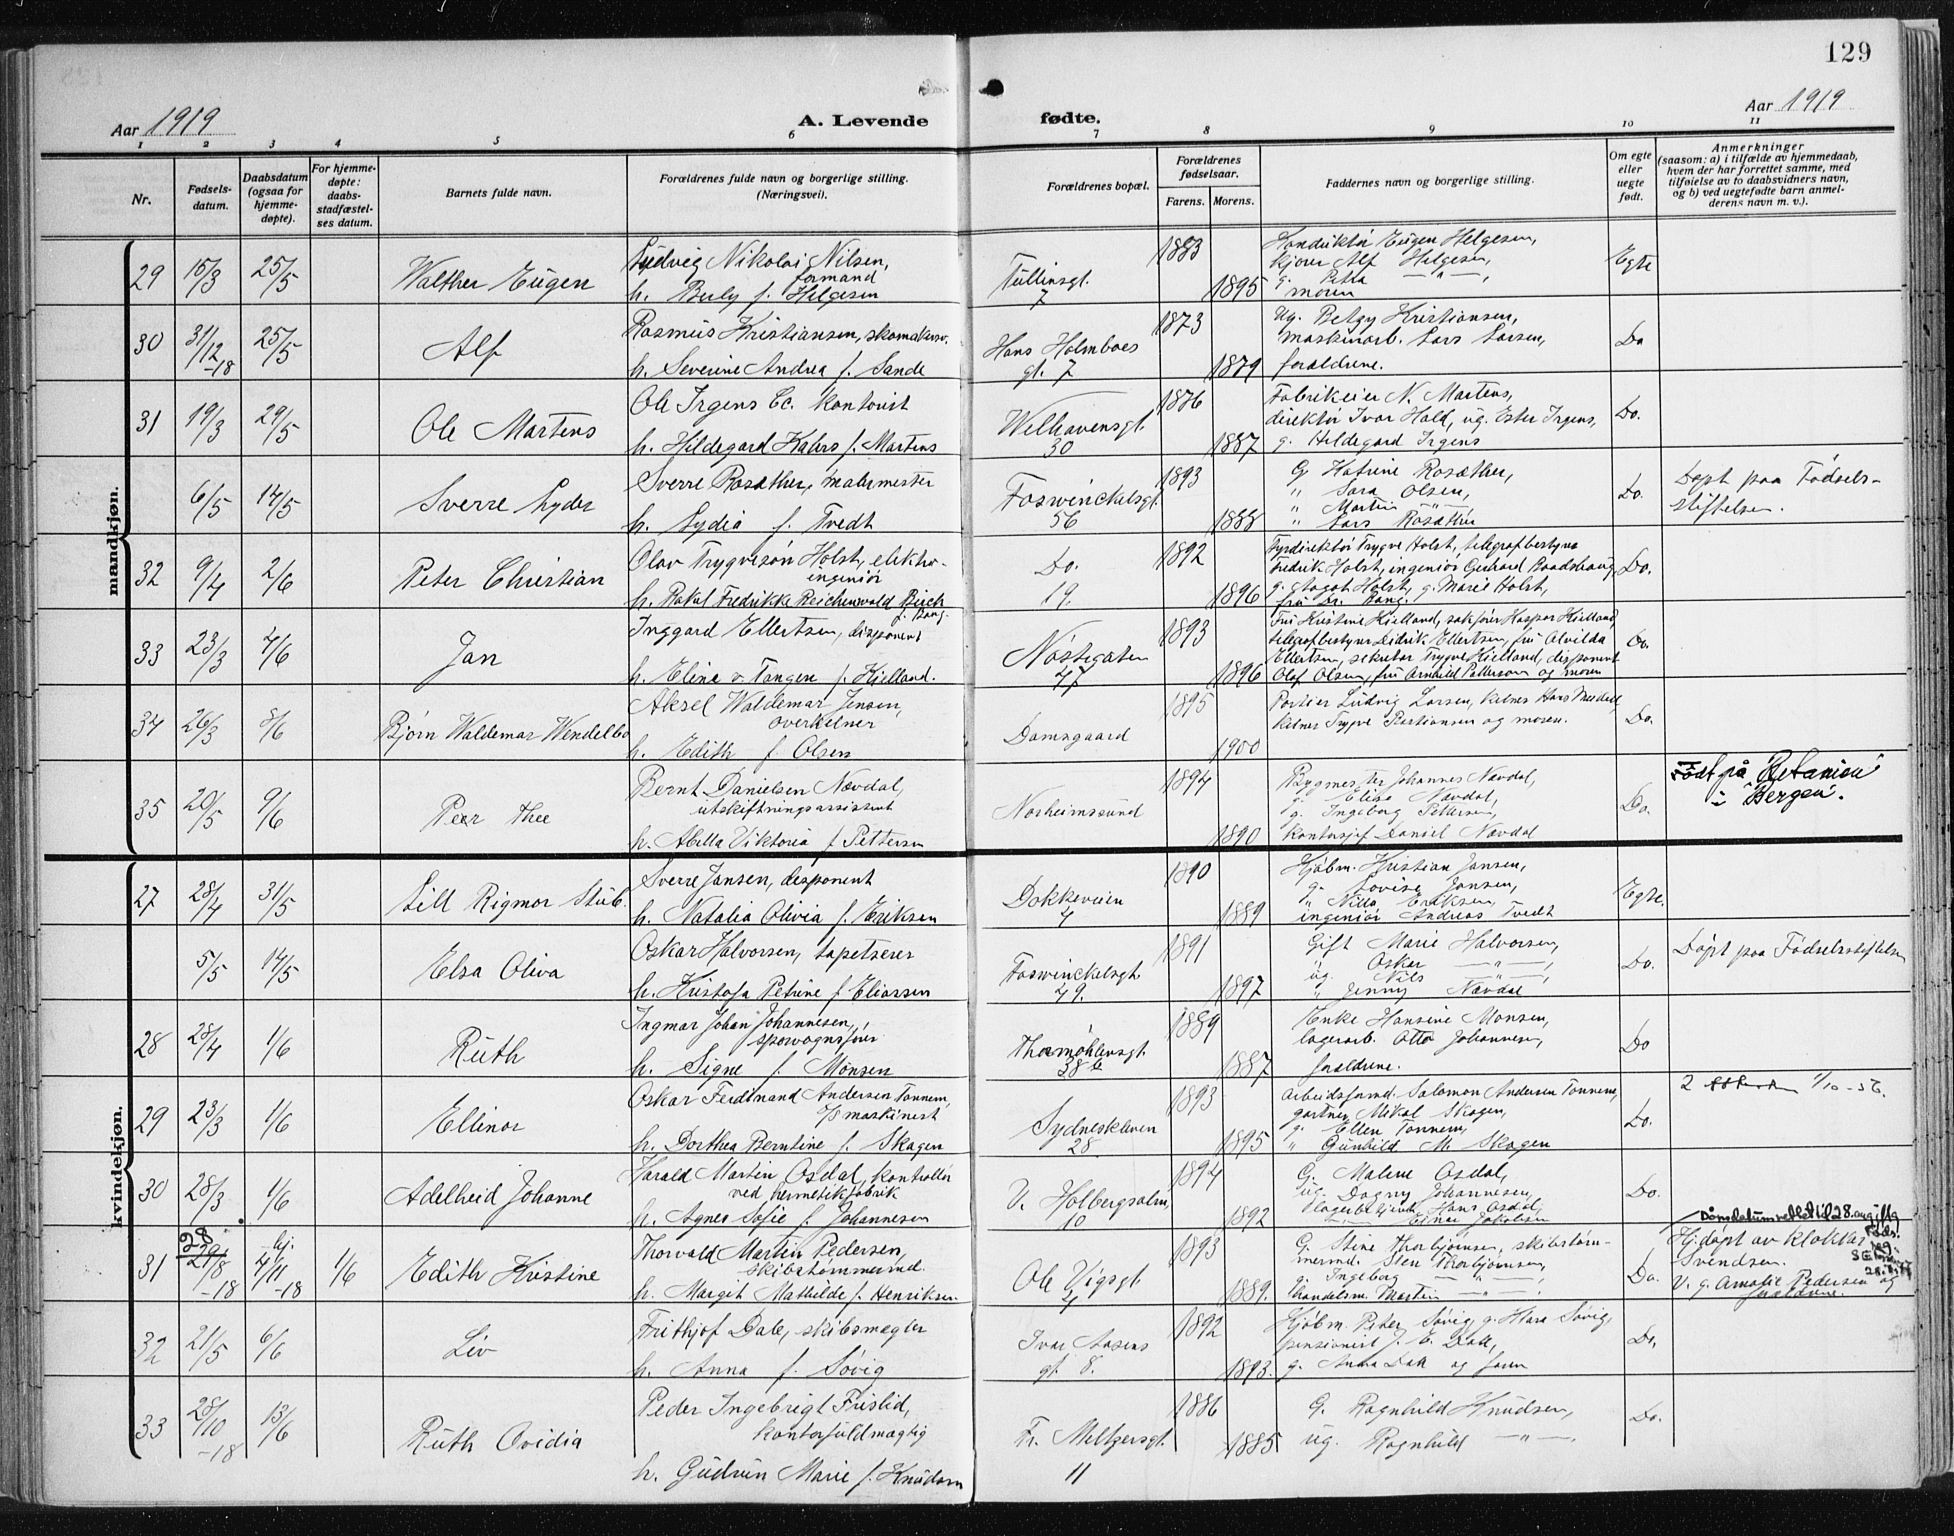 129
Aar 1919
A. Levende fødte.
Aar 1919
1 2 3 4 5 6 7 8 9 10 11
Nr.
Fødsels-
datum.
Daabsdatum
(ogsaa for
hjemme-
døpte).
For hjemme-
døpte:
daabs-
stadfæstel-
ses datum.
Barnets fulde navn.
Forældrenes fulde navn og borgerlige stilling.
(Næringsvei).
Forældrenes bopæl.
Forældrenes
fødselsaar.
Farens. Morens.
Faddernes navn og borgerlige stilling.
Om egte
eller
uegte
født.
Anmerkninger
(saasom: a) i tilfælde av hjemmedaab,
hvem der har forrettet samme, med
tilføielse av to daabsvidners navn,
og b) ved uegtefødte barn anmel-
derens navn m. v.).
mandkjøn.
29 15/3 25/5 Walther Eugen
Ludvig Nikolai Nilsen,
formand
h. Berly f. Helgesen
Tullinsgt.
7
1883 1895
Konduktør Eugen Helgesen,
kjører Alf Helgesen,
g. Petra — " —,
moren
Egte
30 31/12 -18 25/5 Alf
Rasmus Kristiansen, skomakersv.
h. Severine Andrea f. Sande
Hans Holmboes
gt. 7
1873 1879
Ug. Betzy Kristiansen,
maskinarb. Lars Larsen,
forældrene.
Do
31 19/3 29/5 Ole Martens
Ole Irgens Cc. kontorist
h. Hildegard Kahrs f. Martens
Welhavensgt.
30
1876 1887
Fabrikeier N. Martens,
direktør Ivar Hald, ug. Ester Irgens,
g. Hildegard Irgens
Do.
6/5 14/5 Sverre Lyder
Sverre Rosæther, malermester
h. Lydia f. Tvedt
Fosswinckelsgt.
56
1893 1888
G Katrine Rosæther,
" Sara Olsen,
" Martin — " —
" Lars Rosæther
Do.
Døpt paa Fødsels-
stiftelsen.
32 9/4 2/6 Peter Christian
Olav Trygveson Holst, elektro-
ingeniør
h. Rakel Fredrikke Reichenwald Birch
f. Bang.
Do.
19.
1892 1896
Fyrdirektør Trygve Holst, telegrafbestyrer
Fredrik Holst, ingeniør Gerhard Baadshaug,
g. Aagot Holst, g. Marie Holst,
fru Dr. Bang.
Do.
33 23/3 7/6 Jan
Inggard Ellertsen, disponent
h. Elina v Tangen f. Kielland.
Nøstegaten
47
1893 1896
Fru Kristine Kielland, sakfører Kaspar Kielland
telegrafbestyrer Didrik Ellertsen, fru Alvilda
Ellertsen, sekretær Trygve Kielland, disponent
Olaf Olsen, fru Arnhild Patterson og moren
Do.
34 26/3 8/6 Bjørn Waldemar Wendelbo
Aksel Waldemar Jensen,
overkelner
h. Edith f. Olsen
Damsgaard
1895 1900
Portier Ludvig Larsen, kelner Hans
kelner Trygve og moren.
Do.
35 20/5 9/6 Peer Thee
Bernt Danielsen Nævdal,
utskiftningsassistent
h. Abella Viktoria f. Pettersen
Norheimssund
1894 1890
Bygmester Johannes Nævdal,
g. Elise Nævdal,
g. Ingeborg Pettersen,
kontorsjef Daniel Nævdal
Do.
Født på "Betanien"
i Bergen.
kvindekjøn.
27 28/4 31/5 Lill Rigmor Stub.
Sverre Jansen, disponent
h. Natalia Olivia f. Eriksen
Dokkeveien
4
1890 1889
Kjøbm. Kristian Jansen,
g. Lovise Jansen,
" Nilla Eriksen,
ingeniør Andreas Tvedt
Egte.
5/5 14/5 Elsa Oliva
Oskar Halvorsen, tapetserer
h. Kristofa Petrine f. Eliassen
Fosswinckelsgt.
49.
1891 1897
Gift Marie Halvorsen,
" Oskar — " —,
ug. Nils — " —
" Jenny Nævdal
Do.
Døpt paa Fødselsstiftelsen
28 28/4 1/6 Ruth
Ingmar Johan Johannesen,
sporvognsfører
h. Signe f. Monsen
Thormøhlensgt.
38 b
1889 1887
Enke Hansine Monsen,
lagerarb. Otto Johannesen,
forældrene.
Do
29 23/3 1/6 Ellinor
Oskar Ferdinand Andersen Tonnem,
maskinist
h. Dorthea Berntine f. Skagen
Sydneskleven
28.
1893 1895
Arbeidsformd. Salomon Andersen Tonnem,
gartner Mikal Skagen,
g. Ellen Tonnem,
" Gunhild M. Skagen
Do.
2 1/10-56.
30 28/3 1/6 Adelheid Johanne
Harald Martin Osdal, kontrollør
ved hermetikfabrik
h. Agnes Sofie f. Johannesen
V. Holbergsalm.
10
1894 1892
G. Malene Osdal,
ug. Dagny Johannesen,
lagerbetjent Hans Osdal
— " — Einar Jakobsen
Do.
31 28 29/8 -18 hj. 4/11 -18 1/6 Edith Kristine
Thorvald Martin Pedersen,
skibstømmermd.
h. Margit Mathilde f. Henriksen.
Ole Vigsgt.
4
1893 1889.
G. Stine Thorbjørnsen, skibstøm-
mermd. Sten Thorbjørnsen,
g. Ingeborg — " —,
handelsm. Martin — " —.
Do.
28. aug.
Hj.døpt av klokker
Svendsen.
V. g. Amalie Pedersen og
32 21/5 6/6 Liv
Frithjof Dale, skibsmegler
h. Anna f. Søvig
Ivar Aasens
gt. 8.
1892 1893.
Kjøbm. Peter Søvig, g. Klara Søvig,
pensionist J. E. Dale,
g. Anna Dale og faren
Do.
33 28/10 -18 13/6 Ruth Ovidia
Peder Ingebrigt Frislid,
kontorfuldmægtig
h. Gudrun Marie f. Knudsen
Fr. Meltzersgt.
11
1886 1885
G. Ragnhild Knudsen,
ug. Ragnhild — " —.
Do.